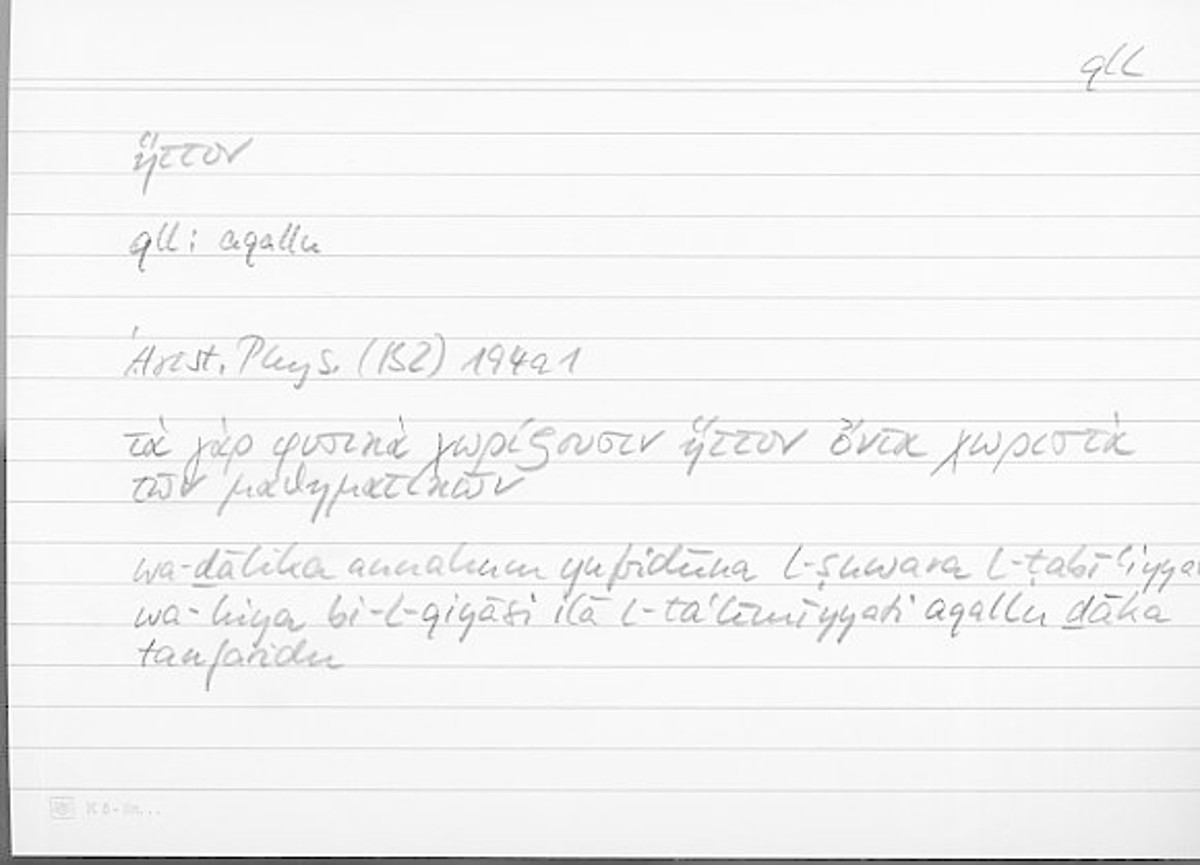 qll
ἧττον
qll: aqallu
Arist. Phys. (B2) 194a1
τὰ γὰρ φυσικὰ χωρίζουσιν ἧττον ὄντα χωριστὰ
τῶν μαθηματικῶν
wa-ḏālika annahum yufridūna l-ṣuwara l-ṭabīʿiyya
wa-hiya bi-l-qiyāsi ilā l-taʿlīmiyyati aqallu ḏāka
tanfaridu